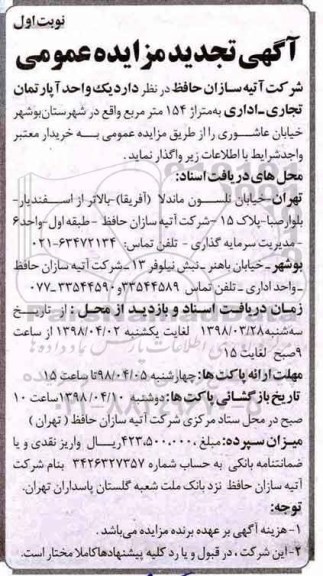 نوبت اول
آگهی تجدید مزایده عمومی
شرکت آتیه سازان حافظ در نظر دارد یک واحد آپارتمان
تجاری-اداری به‌متراژ ۱۵۴ متر مربع واقع در شهرستان‌بوشهر
خیابان عاشوری را از طریق مزایده عمومی به خریدار معتبر
واجدشرایط با اطلاعات زیر واگذار نماید.
محل های دریافت اسناد:
تهران-خیابان نلسون ماندلا (آفریقا)-بالاتر از اسفندیار-
بلوارصبا-پلاک ۱۵-شرکت آتیه سازان حافظ -طبقه اول-واحد۶
-مدیریت سرمایه گذاری - تلفن تماس: ۶۳۴۷۲۱۳۴-۰۲۱
بوشهر-خیابان باهنر-نبش نیلوفر ۱۳-شرکت آتیه سازان حافظ
-واحد اداری-تلفن تماس ۳۳۵۴۴۵۸۹و۳۳۵۴۴۵۹۰-۰۷۷
زمان دریافت اسناد و بازدید از محل: از تاریخ
سه‌شنبه۱۳۹۸/۰۳/۲۸ لغایت یکشنبه ۱۳۹۸/۰۴/۰۲ از ساعت
۹صبح لغایت ۱۵
مهلت ارائه پاکت ها: چهارشنبه ۹۸/۰۴/۰۵تا ساعت ۱۵
تاریخ بازگشائی پاکت ها: دوشنبه ۱۳۹۸/۰۴/۱۰ ساعت ۱۰
صبح در محل ستاد مرکزی شرکت آتیه سازان حافظ (تهران)
میزان سپرده: مبلغ ۴۲۳،۵۰۰،۰۰۰ریال واریز نقدی و یا
ضمانتنامه بانکی به حساب شماره ۳۴۲۶۳۲۷۳۵۷ بنام شرکت
آتیه سازان حافظ نزد بانک ملت شعبه گلستان پاسداران تهران.
توجه:
۱-هزینه آگهی بر عهده برنده مزایده می‌باشد.
۲-این شرکت، در قبول و یا رد کلیه پیشنهادها کاملا مختار است.